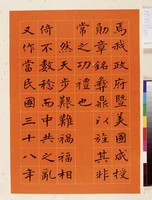 焉我政府暨美國咸授
勛章銘彝鼎以旌其非
常之功禮也
然天步艱難禍福相
倚不數稔而中共之亂
又作當民國三十八年